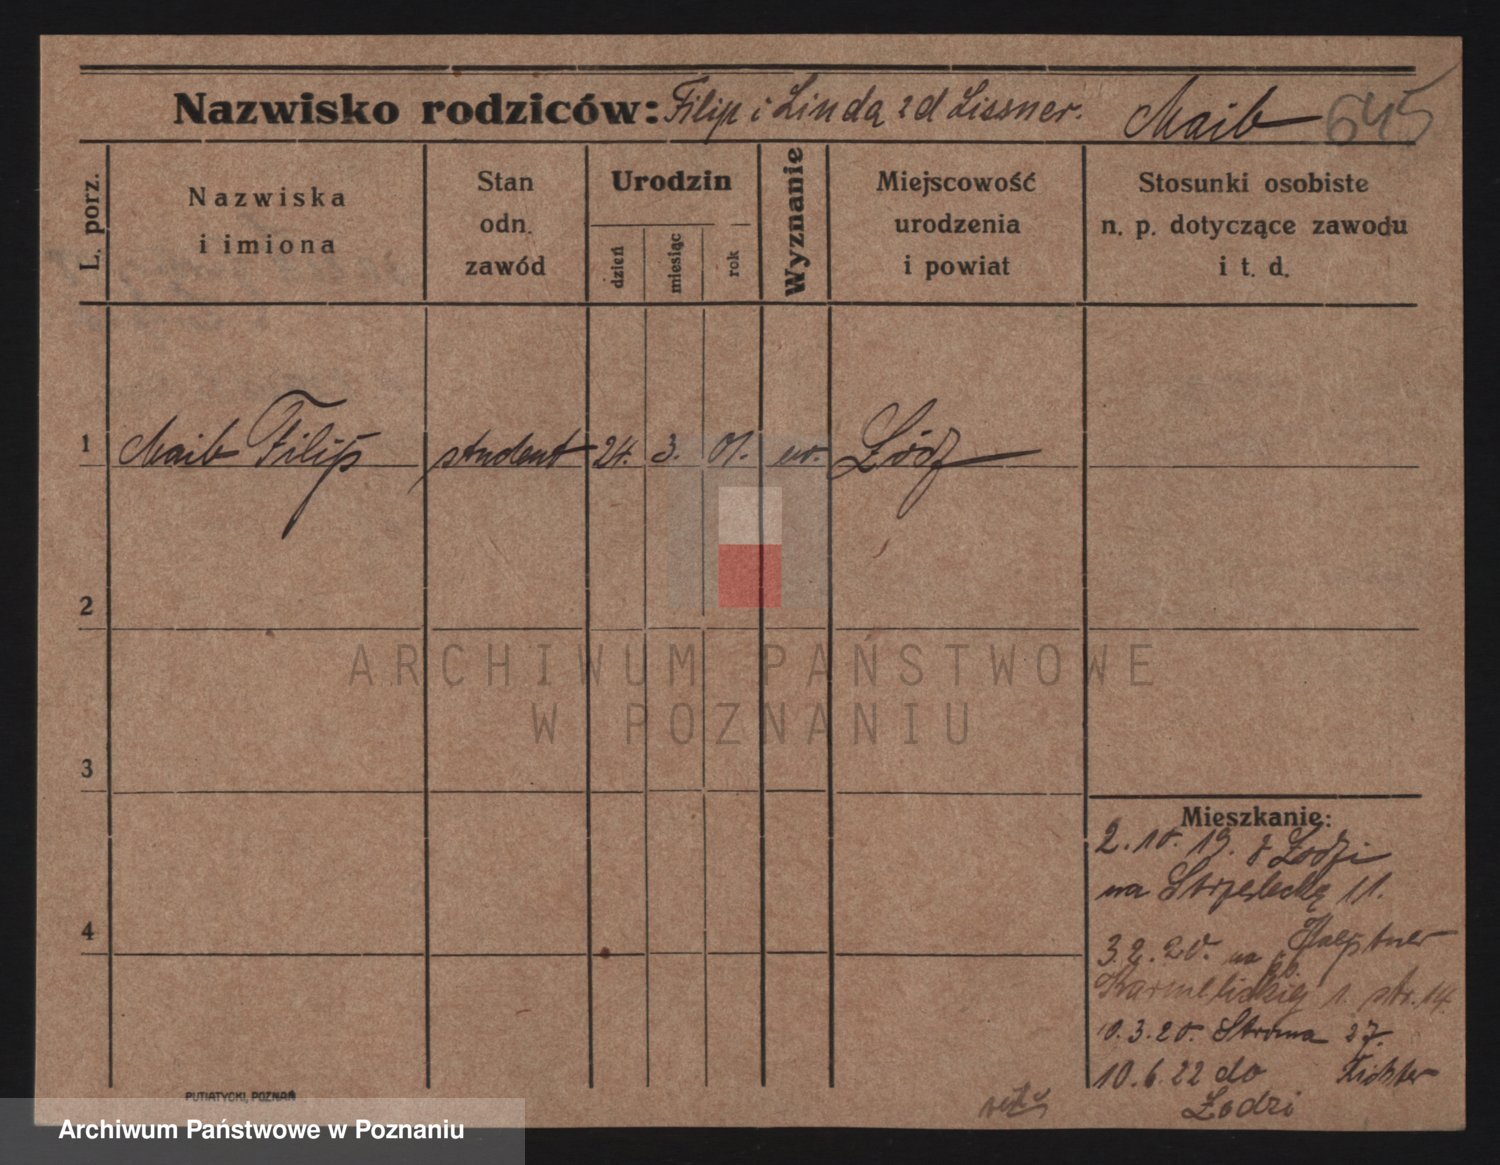 Nazwisko rodziców: Filip i Linda zd Lissner. Maib 645
L. porz.
Nazwiska
i imiona
Stan
odn.
zawód
Urodzin
dzień
miesiąc
rok
Wyznanie
Miejscowość
urodzenia
i powiat
Stosunki osobiste
n. p. dotyczące zawodu
i t. d.
1 Maib Filip student 24. 3. 01. Łódz
2
3
4
Mieszkanie:
2.10.19. z Łodzi
na Strzelecką 11.
3.2.20. na
Karmelickiej 1. str. 14
10.3.20. Stroma 27.
10.6.22 do Fichter
Łodzi
PUTIATYCKI, POZNAŃ
ARCHIWUM PAŃSTWOWE
W POZNANIU
Archiwum Państwowe w Poznaniu